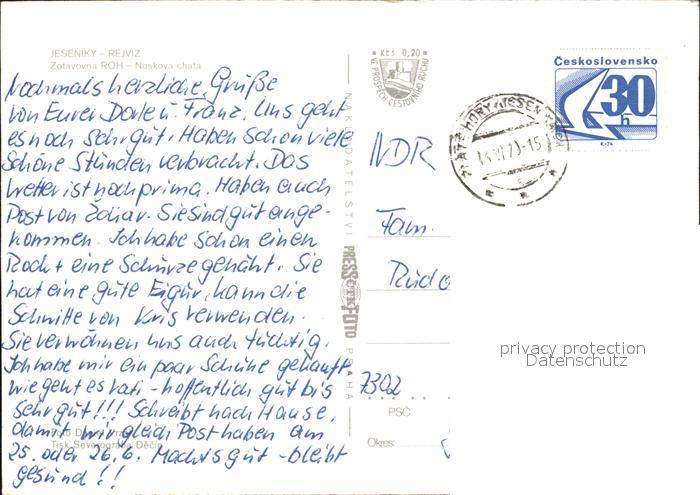 JESENÍKY – REJVÍZ
Zotavovna ROH – Noskova chata
Nochmals herzliche Grüße
von Eurer Dorle u. Franz. Uns geht
es noch sehr gut. Haben schon viele
schöne Stunden verbracht. Das
Wetter ist noch prima. Haben auch
Post von Ždiar. Sie sind gut ange-
kommen. Ich habe schon einen
Rock + eine Schürze genäht. Sie
hat eine gute Figur, kann die
Schnitte von Kris verwenden.
Sie verwöhnen uns auch tüchtig.
Ich habe mir ein paar Schuhe gekauft
wie geht es - hoffentlich gut bis
sehr gut!!! Schreibt nach Hause,
damit wir gleich Post haben am
25. oder 26.6. Machts gut - bleibt
gesund!!
Tisk Severografia Děčín
NAKLADATELSTVÍ
PRESSFOTO
PRAHA
Kčs 0,20
VE PROSPĚCH CESTOVNÍHO RUCHU
Československo
30h
NDR
Fam.
Rudo
7302
PSČ
Okres:
privacy protection
Datenschutz